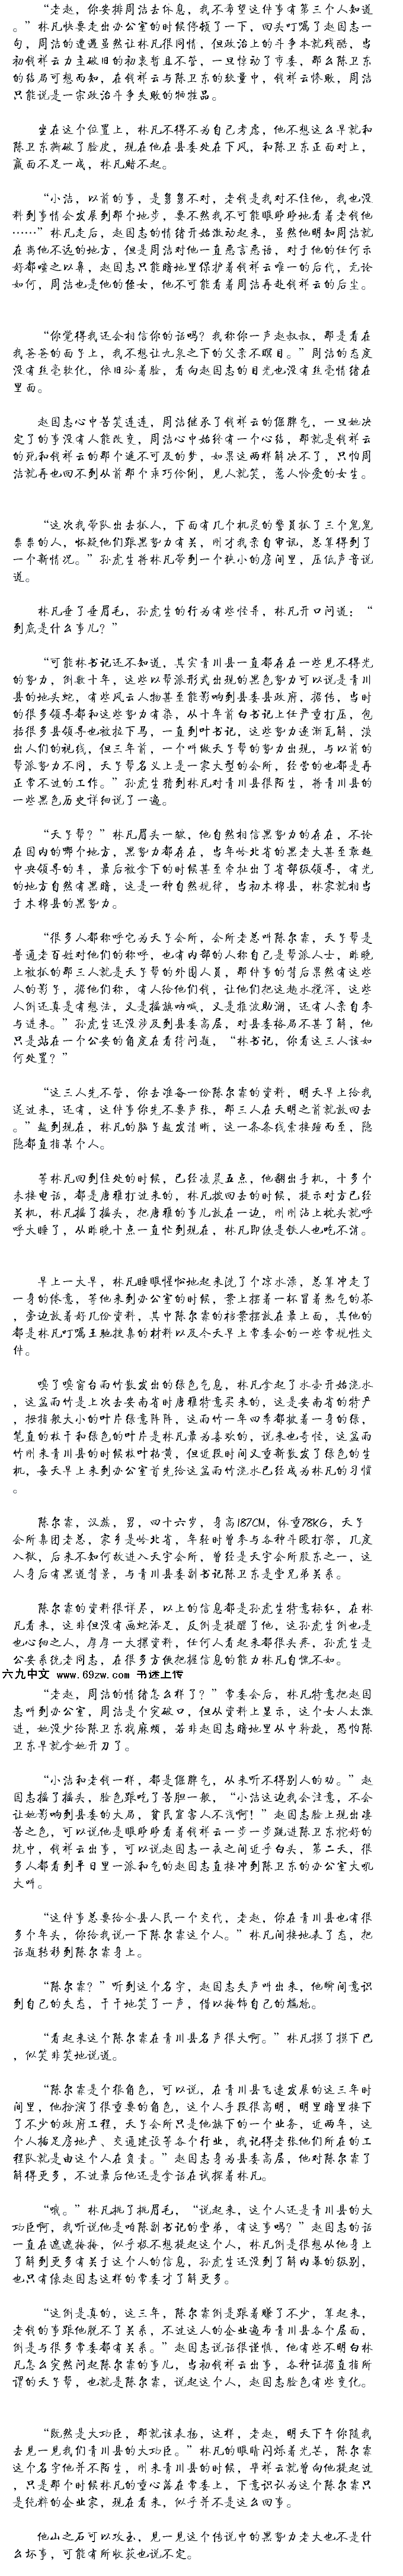 “老赵，你安排周洁去休息，我不希望这件事有第三个人知道
。”林凡快要走出办公室的时候停顿了一下，回头叮嘱了赵国志一
句，周洁的遭遇虽然让林凡很同情，但政治上的斗争本就残酷，当
初钱祥云力主破旧的初衷暂且不管，一旦惊动了市委，那么陈卫东
的结局可想而知，在钱祥云与陈卫东的较量中，钱祥云惨败，周洁
只能说是一宗政治斗争失败的牺牲品。
坐在这个位置上，林凡不得不为自己考虑，他不想这么早就和
陈卫东撕破了脸皮，现在他在县委处在下风，和陈卫东正面对上，
赢面不足一成，林凡赌不起。
“小洁，以前的事，是舅舅不对，老钱是我对不住他，我也没
料到事情会发展到那个地步，要不然我不可能眼睁睁地看着老钱他
……”林凡走后，赵国志的情绪开始激动起来，虽然他明知周洁就
在离他不远的地方，但是周洁对他一直恶言恶语，对于他的任何示
好都嗤之以鼻，赵国志只能暗地里保护着钱祥云唯一的后代，无论
如何，周洁也是他的侄女，他不可能看着周洁再赴钱祥云的后尘。
“你觉得我还会相信你的话吗？我称你一声赵叔叔，那是看在
我爸爸的面子上，我不想让九泉之下的父亲不瞑目。”周洁的态度
没有丝毫软化，依旧冷着脸，看向赵国志的目光也没有丝毫情绪在
里面。
赵国志心中苦笑连连，周洁继承了钱祥云的倔脾气，一旦她决
定了的事没有人能改变，周洁心中始终有一个心结，那就是钱祥云
的死和钱祥云的那个遥不可及的梦，如果这两样解决不了，只怕周
洁就再也回不到从前那个乖巧伶俐，见人就笑，惹人怜爱的女生。
“这次我带队出去抓人，下面有几个机灵的警员抓了三个鬼鬼
祟祟的人，怀疑他们跟黑势力有关，刚才我亲自审讯，总算得到了
一个新情况。”孙虎生将林凡带到一个狭小的房间里，压低声音说
道。
林凡垂了垂眉毛，孙虎生的行为有些怪异，林凡开口问道：“
到底是什么事儿？”
“可能林书记还不知道，其实青川县一直都存在一些见不得光
的势力，倒数十年，这些以帮派形式出现的黑色势力可以说是青川
县的地头蛇，有些风云人物甚至能影响到县委县政府，据传，当时
的很多领导都和这些势力有染，从十年前白书记上任严重打压，包
括很多县领导也被拉下马，一直到叶书记，这些势力逐渐瓦解，淡
出人们的视线，但三年前，一个叫做天子帮的势力出现，与以前的
帮派势力不同，天子帮名义上是一家大型的会所，经营的也都是再
正常不过的工作。”孙虎生猜到林凡对青川县很陌生，将青川县的
一些黑色历史详细说了一遍。
“天子帮？”林凡眉头一皱，他自然相信黑势力的存在，不论
在国内的哪个地方，黑势力都存在，当年岭北省的黑老大甚至敢超
中央领导的车，最后被拿下的时候甚至牵扯出了省部级领导，有光
的地方自然有黑暗，这是一种自然规律，当初木棉县，林家就相当
于木棉县的黑势力。
“很多人都称呼它为天子会所，会所老总叫陈尔霖，天子帮是
普通老百姓对他们的称呼，也有内部的人称自己是帮派人士，昨晚
上被抓的那三人就是天子帮的外围人员，那件事的背后果然有这些
人的影子，据他们称，有人给他们钱，让他们把这趟水搅浑，这些
人倒还真是有想法，又是摇旗呐喊，又是推波助澜，还有人亲自参
与进来。”孙虎生还没涉及到县委高层，对县委格局不甚了解，他
只是站在一个公安的角度在看待问题，“林书记，你看这三人该如
何处置？”
“这三人先不管，你去准备一份陈尔霖的资料，明天早上给我
送过来，还有，这件事你先不要声张，那三人在天明之前就放回去
。”越到现在，林凡的脑子越发清晰，这一条条线索接踵而至，隐
隐都直指某个人。
等林凡回到住处的时候，已经凌晨五点，他翻出手机，十多个
未接电话，都是唐雅打过来的，林凡拨回去的时候，提示对方已经
关机，林凡摇了摇头，把唐雅的事儿放在一边，刚刚沾上枕头就呼
呼大睡了，从昨晚十点一直忙到现在，林凡即使是铁人也吃不消。
早上一大早，林凡睡眼惺忪地起来洗了个凉水澡，总算冲走了
一身的倦意，等他来到办公室的时候，桌上摆着一杯冒着热气的茶
，旁边放着好几份资料，其中陈尔霖的档案摆放在最上面，其他的
都是林凡叮嘱王驰搜集的材料以及今天早上常委会的一些常规性文
件。
嗅了嗅窗台雨竹散发出的绿色气息，林凡拿起了水壶开始浇水
，这盆雨竹是上次去安南省时唐雅特意买来的，这是安南省的特产
，按指般大小的叶片绿意阵阵，这雨竹一年四季都披着一身的绿，
笔直的枝干和绿色的叶片是林凡最为喜欢的，说来也奇怪，这盆雨
竹刚来青川县的时候枝叶枯黄，但近段时间又重新散发了绿色的生
机，每天早上来到办公室首先给这盆雨竹浇水已经成为林凡的习惯
。
陈尔霖，汉族，男，四十六岁，身高187CM，体重78KG，天子
会所集团老总，家乡是岭北省，年轻时曾参与各种斗殴打架，几度
入狱，后来不知何故进入天宇会所，曾经是天宇会所股东之一，这
人身后有黑道背景，与青川县委副书记陈卫东是堂兄弟关系。
陈尔霖的资料很详尽，以上的信息都是孙虎生特意标红，在林
凡看来，这非但没有画蛇添足，反倒是提醒了他，这孙虎生倒也是
也心细之人，厚厚一大摞资料，任何人看起来都很头疼，孙虎生是
公安系统老同志，在很多方面把握信息的能力林凡自愧不如。
六九中文 www.69zw.com 书迷上传
“老赵，周洁的情绪怎么样了？”常委会后，林凡特意把赵国
志叫到办公室，周洁是个突破口，但从资料上显示，这个女人太激
进，她没少给陈卫东找麻烦，若非赵国志暗地里从中斡旋，恐怕陈
卫东早就拿她开刀了。
“小洁和老钱一样，都是倔脾气，从来听不得别人的劝。”赵
国志摇了摇头，脸色跟吃了苦胆一般，“小洁这边我会注意，不会
让她影响到县委的大局，贫民窟害人不浅啊！”赵国志脸上现出凄
苦之色，可以说他是眼睁睁看着钱祥云一步一步跳进陈卫东挖好的
坑中，钱祥云出事，可以说赵国志一夜之间近乎白头，第二天，很
多人都看到平日里一派和气的赵国志直接冲到陈卫东的办公室大吼
大叫。
“这件事总要给全县人民一个交代，老赵，你在青川县也有很
多个年头，你给我说一下陈尔霖这个人。”林凡间接地表了态，把
话题转移到陈尔霖身上。
“陈尔霖？”听到这个名字，赵国志失声叫出来，他瞬间意识
到自己的失态，干干地笑了一声，借以掩饰自己的尴尬。
“看起来这个陈尔霖在青川县名声很大啊。”林凡摸了摸下巴
，似笑非笑地说道。
“陈尔霖是个狠角色，可以说，在青川县飞速发展的这三年时
间里，他扮演了很重要的角色，这个人手段很高明，明里暗里接下
了不少的政府工程，天子会所只是他旗下的一个业务，近两年，这
个人插足房地产、交通建设等各个行业，我记得老张他们所在的工
程队就是由这个人在负责。”赵国志身为县委高层，他对陈尔霖了
解得更多，不过最后他还是拿话在试探着林凡。
“哦。”林凡挑了挑眉毛，“说起来，这个人还是青川县的大
功臣啊，我听说他是咱陈副书记的堂弟，有这事吗？”赵国志的话
一直在遮遮掩掩，似乎极不想提起这个人，林凡倒是很想从他身上
了解到更多有关于这个人的信息，孙虎生还没到了解内幕的级别，
也只有像赵国志这样的常委才了解更多。
“这倒是真的，这三年，陈尔霖倒是跟着赚了不少，算起来，
老钱的事跟他脱不了关系，不过这人的企业遍布青川县各个层面，
倒是与很多常委都有关系。”赵国志说话很谨慎，他有些不明白林
凡怎么突然问起陈尔霖的事儿，当初钱祥云出事，各种证据直指所
谓的天子帮，也就是陈尔霖，说起这个人，赵国志脸色有些变化。
“既然是大功臣，那就该表扬，这样，老赵，明天下午你随我
去见一见我们青川县的大功臣。”林凡的眼睛闪烁着光芒，陈尔霖
这个名字他并不陌生，刚来青川县的时候，早祥云就曾向他提起过
，只是那个时候林凡的重心落在常委上，下意识认为这个陈尔霖只
是纯粹的企业家，现在看来，似乎并不是这么回事。
他山之石可以攻玉，见一见这个传说中的黑势力老大也不是什
么坏事，可能有所收获也说不定。